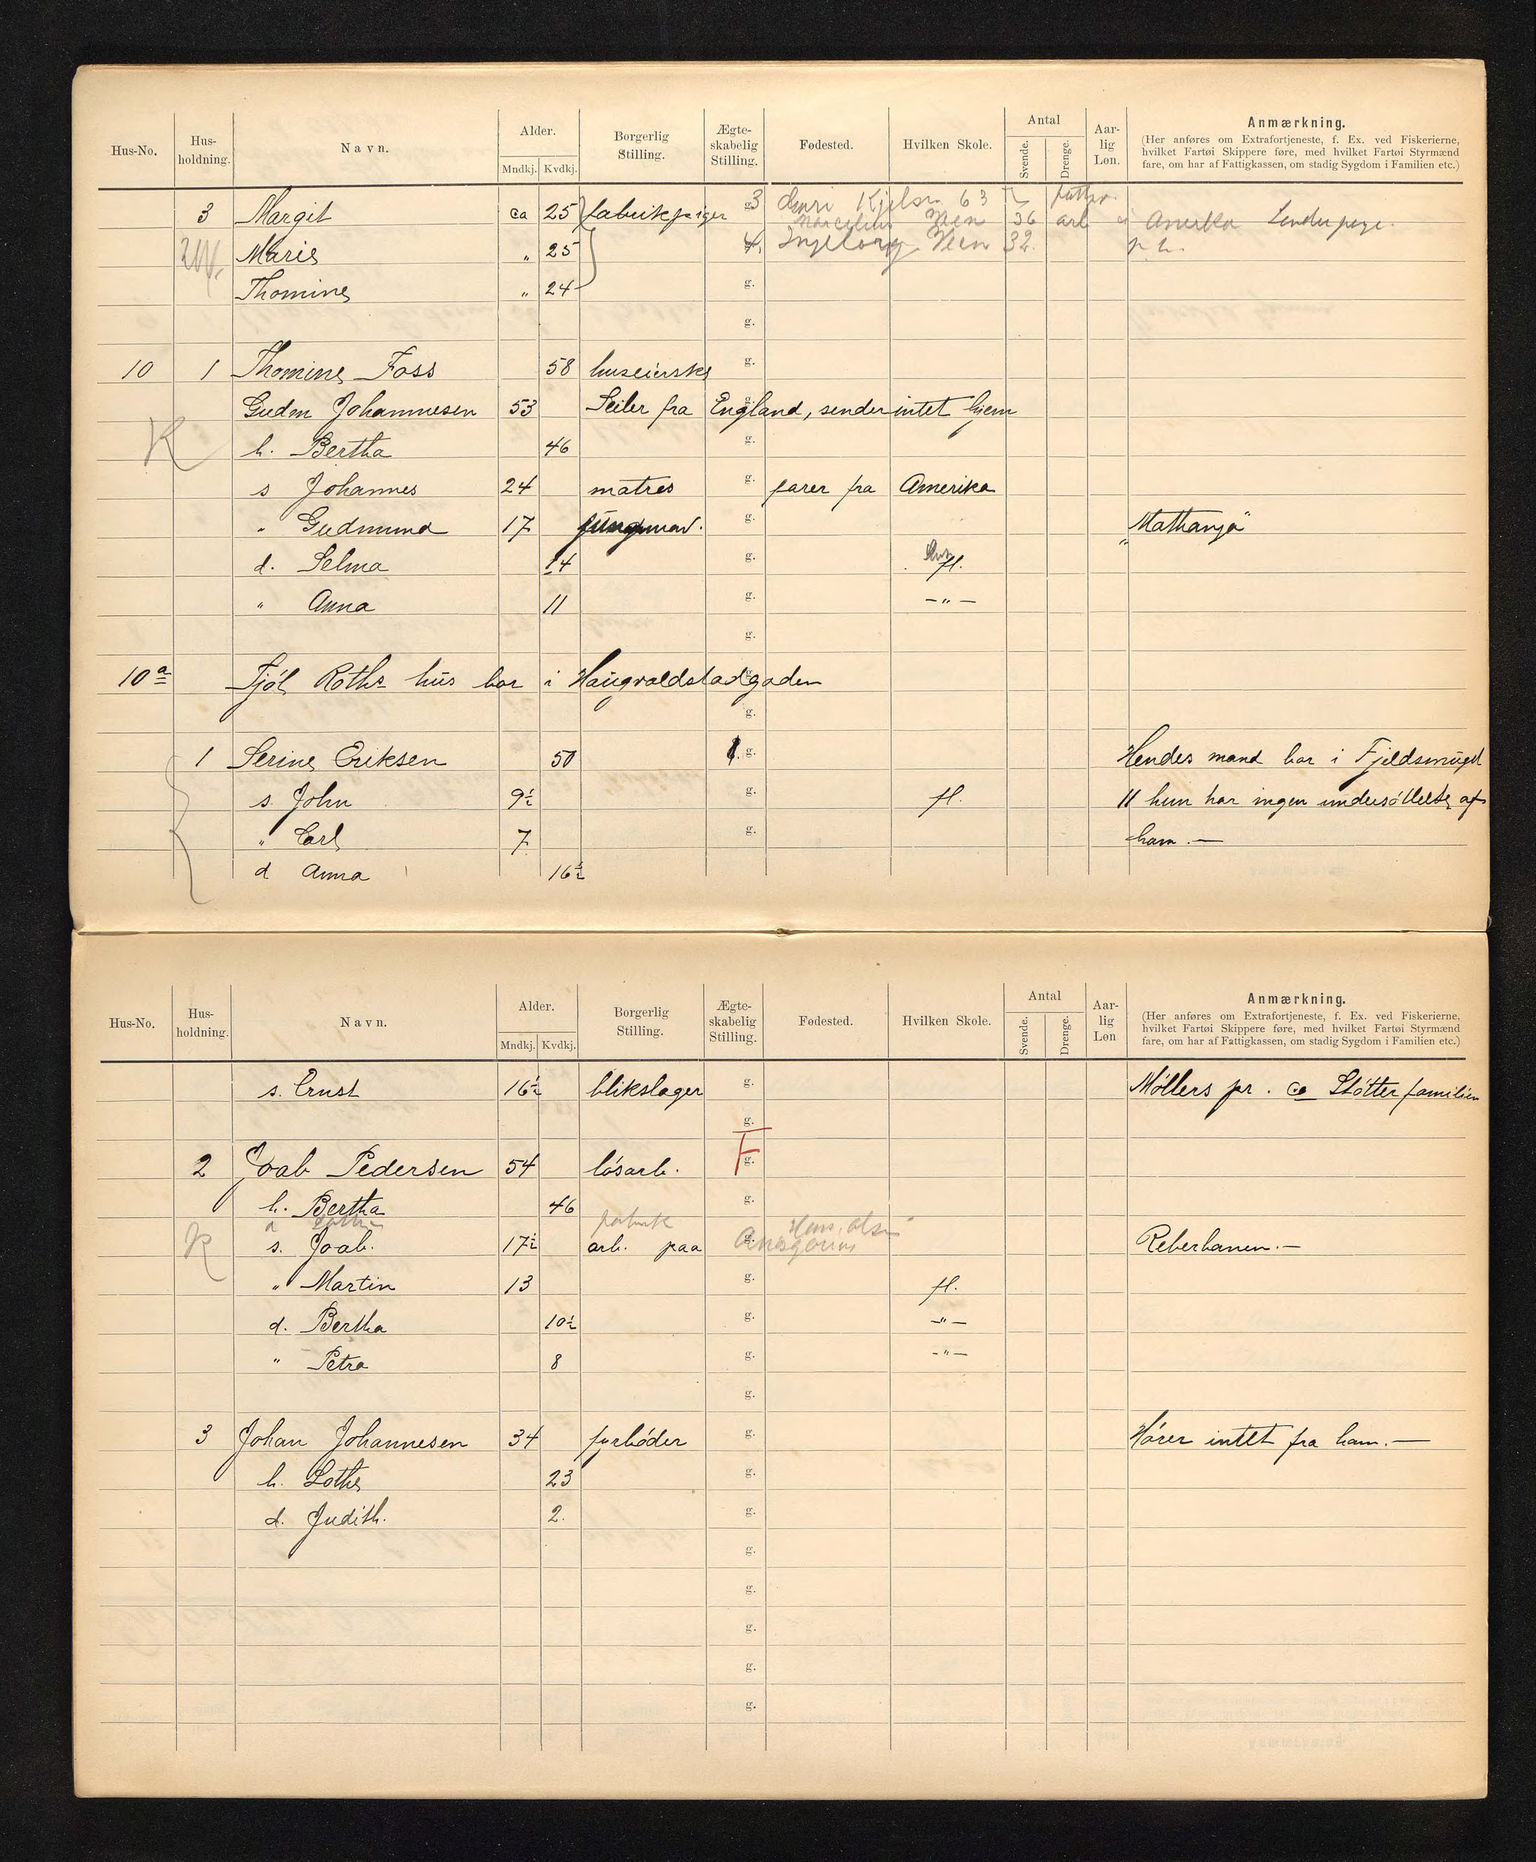 Hus-No. Hus-holdning. Navn. Alder. Mndkj. Kvdkj. Borgerlig Stilling. Ægte-skabelig Stilling. Fødested. Hvilken Skole. Antal Svende. Drenge. Aar-lig Løn. Anmærkning.
(Her anføres om Extrafortjeneste, f. Ex. ved Fiskerierne,
hvilket Fartøi Skippere føre, med hvilket Fartøi Styrmænd
fare, om har af Fattigkassen, om stadig Sygdom i Familien etc.)
3 Margit ca 25 fabrikpiger g. 3 Kjelsn 63
36 arb Amerika
Marie " 25 4. Ingeborg 32
Thomine " 24 g.
g.
10 1 Thomine Foss 58 huseierske g.
Gudm Johannesen 53 Seiler fra England, sender intet hjem
K h. Bertha 46 g.
s Johannes 24 matros g. farer fra Amerika
" Gudmund 17 jungmand. g. "Mathanja"
d. Selma 14 g. fl.
" Anna 11 g. — " —
g.
10a Tjöl Roths hus bor i Haugvaldstadgaden
g.
1 Serine Eriksen 50 g. Hendes mand bor i Fjeldsmuget
s. John 9½ g. fl. 11 hun har ingen undersøttelse af
" Carl 7 g. ham. —
d Anna 16½
Hus-No. Hus-holdning. Navn. Alder. Mndkj. Kvdkj. Borgerlig Stilling. Ægte-skabelig Stilling. Fødested. Hvilken Skole. Antal Svende. Drenge. Aar-lig Løn Anmærkning.
(Her anføres om Extrafortjeneste, f. Ex. ved Fiskerierne,
hvilket Fartøi Skippere føre, med hvilket Fartøi Styrmænd
fare, om har af Fattigkassen, om stadig Sygdom i Familien etc.)
s. Ernst 16½ blikslager g. Möllers pr. ca Støtter familien
g.
2 Joab Pedersen 54 løsarb. F g.
h. Bertha 46 g.
d fabrik Hans Olsen
K s. Joab. 17½ arb. paa g. Reberbanen. —
" Martin 13 g. fl.
d. Bertha 10½ g. — " —
" Petra 8 g. — " —
g.
3 Johan Johannesen 34 fyrbøder g. Hører intet fra ham. —
h. Lothe 23 g.
d. Judith. 2. g.
g.
g.
g.
g.
g.